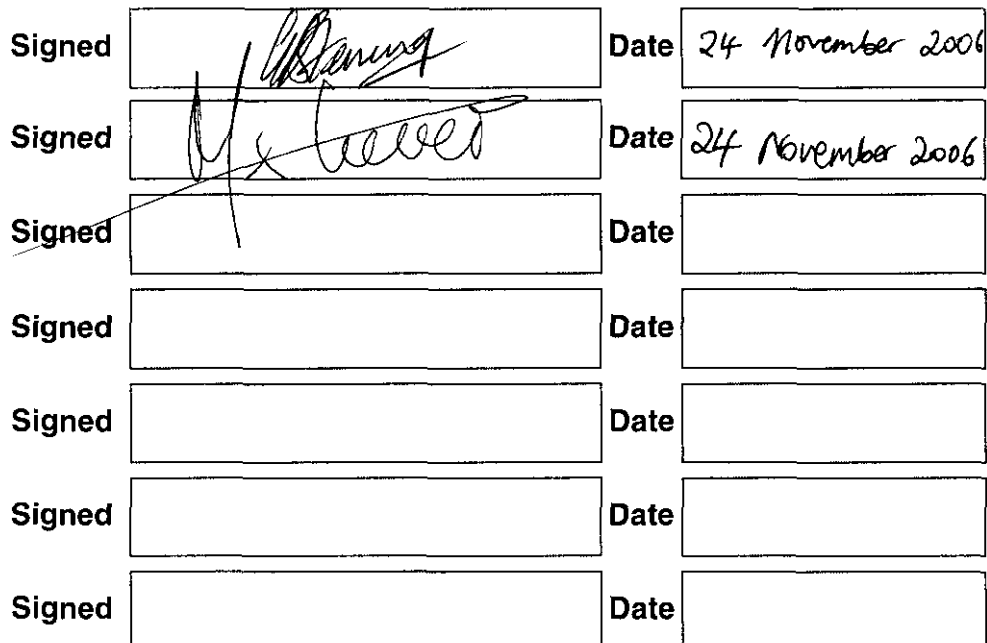 Signed Date 24 November 2006
Signed Date 24 November 2006
Signed Date
Signed Date
Signed Date
Signed Date
Signed Date